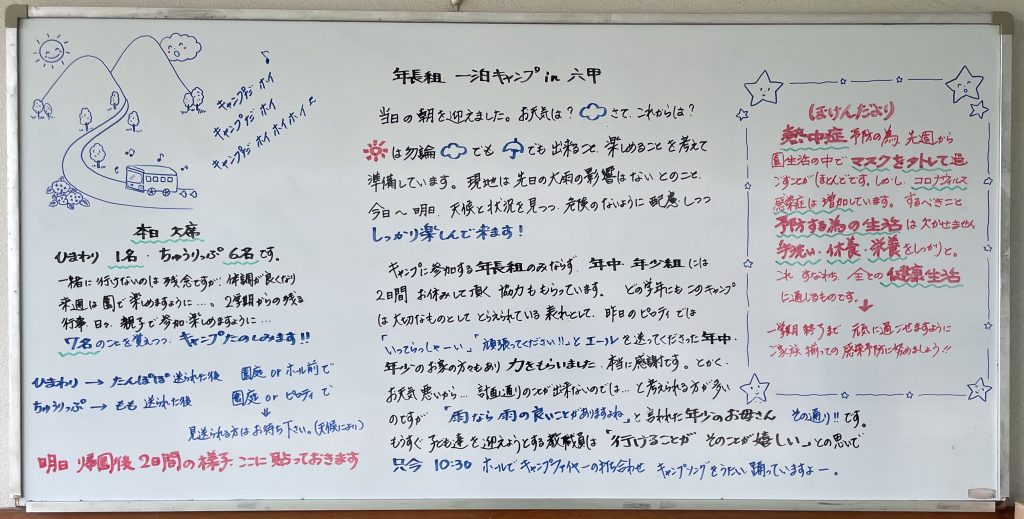 キャンプだ ホイ
キャンプだ ホイ
キャンプだ ホイ ホイ ホイ
本日 欠席
ひまわり 1名・ちゅうりっぷ 6名です。
一緒に行けないのは残念ですが、体調が良くなり
来週は園で楽しめますように…。2学期からの残る
行事、日々、親子で参加・楽しめますように…
7名のことを覚えつつ キャンプたのしみます!!
ひまわり → たんぽぽ 送られた後 園庭 or ホール前で
ちゅうりっぷ → もも 送られた後 園庭 or ピロティで
見送られる方はお待ち下さい。(天候により)
明日 帰園後 2日間の様子 ここに貼っておきます
年長組 一泊キャンプ in 六甲
当日の朝を迎えました。お天気は? さて、これからは?
は勿論 でも でも出来ること、楽しめることを考えて
準備しています。現地は先日の大雨の影響はないとのこと、
今日〜明日、天候と状況を見つつ、危険のないように配慮しつつ
しっかり楽しんで来ます!
キャンプに参加する年長組のみならず、年中・年少組には
2日間 お休みして頂く協力ももらっています。 どの学年にもこのキャンプ
は大切なものとしてとらえられている表れとして、昨日のピロティでは
「いってらっしゃーい」「頑張ってください!!」とエールを送ってくださった年中・
年少のお家の方々もあり力をもらいました。本当に感謝です。とかく、
お天気悪いから… 計画通りのことが出来ないのでは…と考えられる方が多い
のですが「雨なら雨の良いことがありますよね」と言われた年少のお母さん その通り!!です。
もうすぐ子ども達を迎えようとする教職員は「行けることが そのことが嬉しい」との思いで
只今 10:30 ホールでキャンプファイヤーの打ち合わせ キャンプソングをうたい踊っていますよー。
ほけんだより
熱中症予防の為、先週から
園生活の中でマスクを外して過
ごすことがほとんどです。しかし、コロナウイルス
感染症は増加しています。するべきこと
予防する為の生活は欠かせません
手洗い・休養・栄養をしっかりと。
これ すなわち 全ての健康生活
に通じるものです。
→
一学期終了まで 元気に過ごせますように
ご家族揃っての感染予防に努めましょう!!